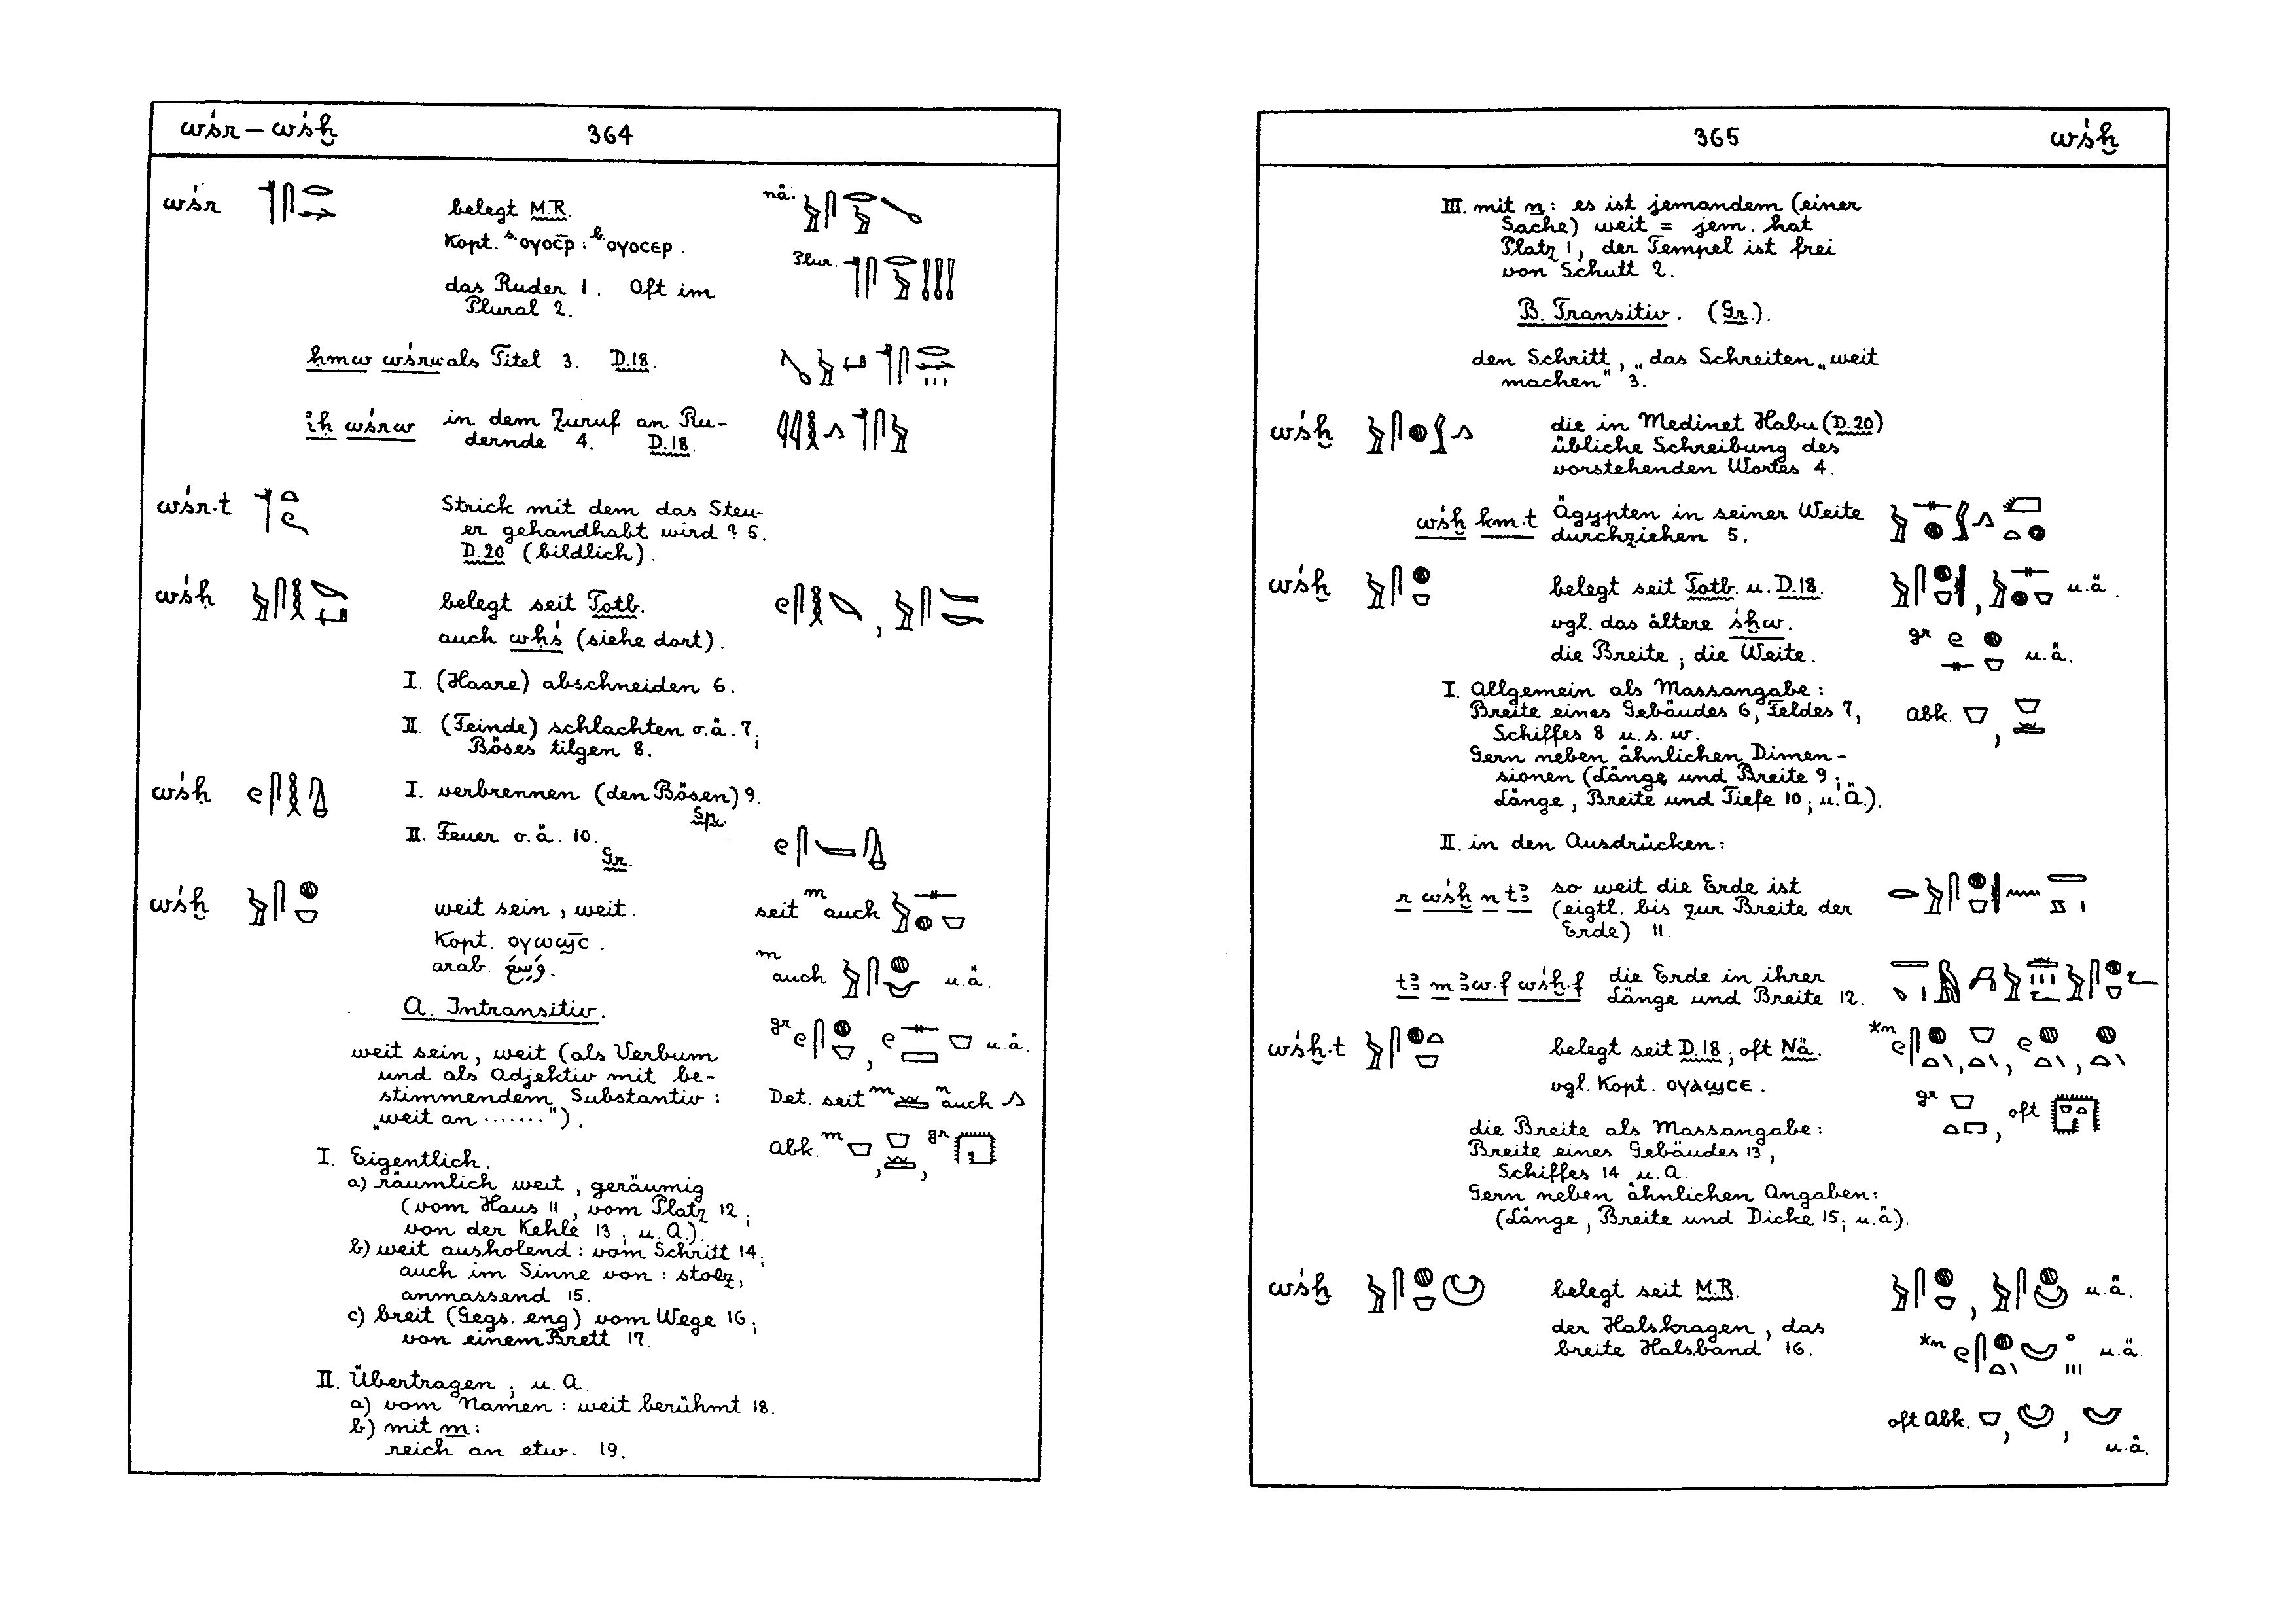 wśr – wśḫ 364
wśr belegt M.R. nä:
Kopt. s. ⲟⲩⲟⲥⲣ̄ : b. ⲟⲩⲟⲥⲉⲣ .
Plur.
das Ruder 1. Oft im
Plural 2.
ḥmw wśrw als Titel 3. D.18.
iḥ wśrw in dem Zuruf an Ru-
dernde 4. D.18.
wśr.t Strick mit dem das Steu-
er gehandhabt wird ? 5.
D.20 (bildlich).
wśḥ belegt seit Totb. ,
auch wḥś (siehe dort).
I. (Haare) abschneiden 6.
II. (Feinde) schlachten o.ä. 7;
Böses tilgen 8.
wśḥ I. verbrennen (den Bösen) 9.
Sp.
II. Feuer o.ä. 10.
Gr.
wśḫ weit sein, weit. seit m auch
Kopt. ⲟⲩⲱϣⲥ̄ .
arab. وَسِعَ. m auch u.ä.
A. Intransitiv.
gr , u.ä.
weit sein, weit (als Verbum
und als Adjektiv mit be-
stimmendem Substantiv : Det. seit m n auch
„weit an ......."). 
Abk. m , , gr
I. Eigentlich.
a) räumlich weit, geräumig
(vom Haus 11, vom Platz 12;
von der Kehle 13; u.A.).
b) weit ausholend: vom Schritt 14;
auch im Sinne von: stolz,
anmassend 15.
c) breit (Gegs. eng) vom Wege 16;
von einem Brett 17.
II. Übertragen; u.A.
a) vom Namen: weit berühmt 18.
b) mit m:
reich an etw. 19.
365 wśḫ
III. mit n: es ist jemandem (einer
Sache) weit = jem. hat
Platz 1, der Tempel ist frei
von Schutt 2.
B. Transitiv. (Gr.).
den Schritt, „das Schreiten „weit
machen" 3.
wśḫ die in Medinet Habu (D.20)
übliche Schreibung des
vorstehenden Wortes 4.
wśḫ km.t Ägypten in seiner Weite
durchziehen 5.
wśḫ belegt seit Totb. u. D.18. , u.ä.
vgl. das ältere śḫw. gr
die Breite; die Weite. u.ä.
I. Allgemein als Massangabe:
Breite eines Gebäudes 6, Feldes 7, Abk. ,
Schiffes 8 u.s.w.
Gern neben ähnlichen Dimen-
sionen (Länge und Breite 9;
Länge, Breite und Tiefe 10; u.Ä.).
II. in den Ausdrücken:
r wśḫ n tꜣ so weit die Erde ist
(eigtl. bis zur Breite der
Erde) 11.
tꜣ m ꜣw.f wśḫ.f die Erde in ihrer
Länge und Breite 12.
*n , , ,
wśḫ.t belegt seit D.18; oft Nä.
vgl. Kopt. ⲟⲩⲁϣⲥⲉ .
gr , oft
die Breite als Massangabe:
Breite eines Gebäudes 13,
Schiffes 14 u.A.
Gern neben ähnlichen Angaben:
(Länge, Breite und Dicke 15; u.ä).
wśḫ belegt seit M.R. , u.ä.
der Halskragen, das
breite Halsband 16. *n u.ä.
oft Abk. , ,
u.ä.